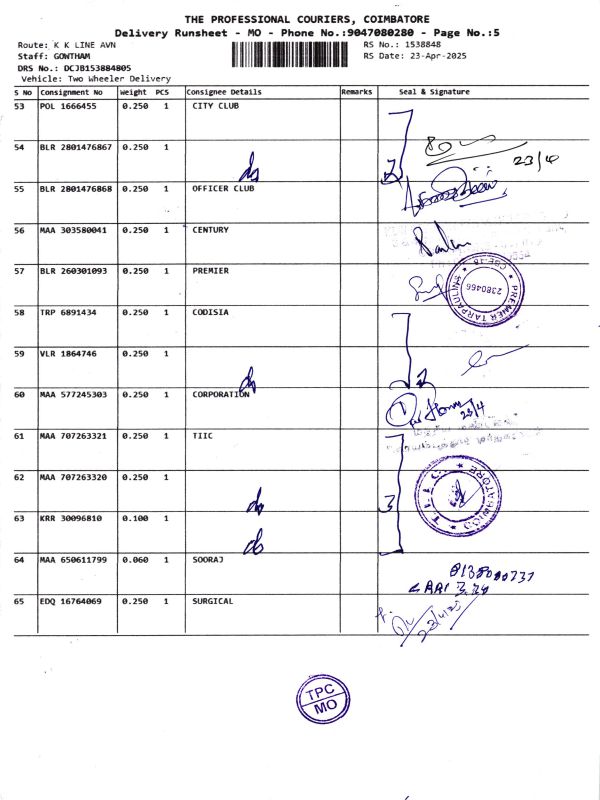 THE PROFESSIONAL COURIERS, COIMBATORE
Delivery Runsheet - MO - Phone No.:9047080280 - Page No.:5
Route: K K LINE AVN RS No.: 1538848
Staff: GOWTHAM RS Date: 23-Apr-2025
DRS No.: DCJB153884805
Vehicle: Two Wheeler Delivery
S No Consignment No Weight PCS Consignee Details Remarks Seal & Signature
53 POL 1666455 0.250 1 CITY CLUB
54 BLR 2801476867 0.250 1
23/4
2
55 BLR 2801476868 0.250 1 OFFICER CLUB
56 MAA 303580041 0.250 1 CENTURY
57 BLR 260301093 0.250 1 PREMIER
PREMIER TARPAULIN CBE-18 2380466
58 TRP 6891434 0.250 1 CODISIA
59 VLR 1864746 0.250 1
2
60 MAA 577245303 0.250 1 CORPORATION
23/4
61 MAA 707263321 0.250 1 TIIC
62 MAA 707263320 0.250 1
T I I C COIMBATORE
3
63 KRR 30096810 0.100 1
64 MAA 650611799 0.060 1 SOORAJ
65 EDQ 16764069 0.250 1 SURGICAL
TPC
MO